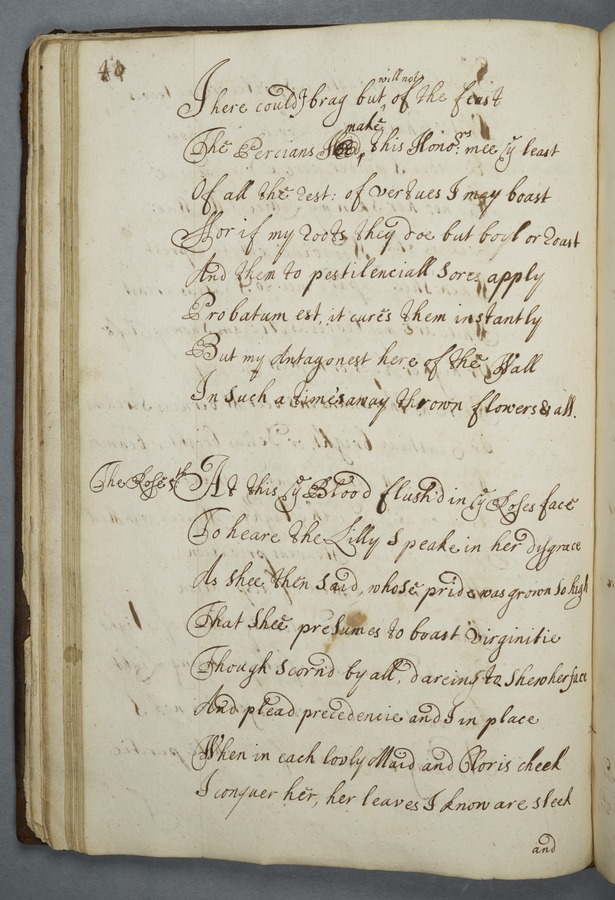 40
There could I brag but will not of the feast
The Percians make, this Honors: mee ye least
Of all the rest: of vertues I may boast
For if my roots they doe but boyl or roast
And them to pestilenciall Sores apply
Probatum est, it cures them instantly
But my Antagonest here of the Wall
In Such a time's away thrown flowers & all.
The Roses At this ye Blood flush'd in ye Roses face
To heare the Lilly Speake in her disgrace
As Shee then Said, whose pride was grown So high
That Shee presumes to boast virginitie
Though Scorn'd by all, dareing to Shew her face
And plead precedencie and I in place
When in each lovly Maid and Cloris cheek
I conquer her, her leaves I know are sleek
and